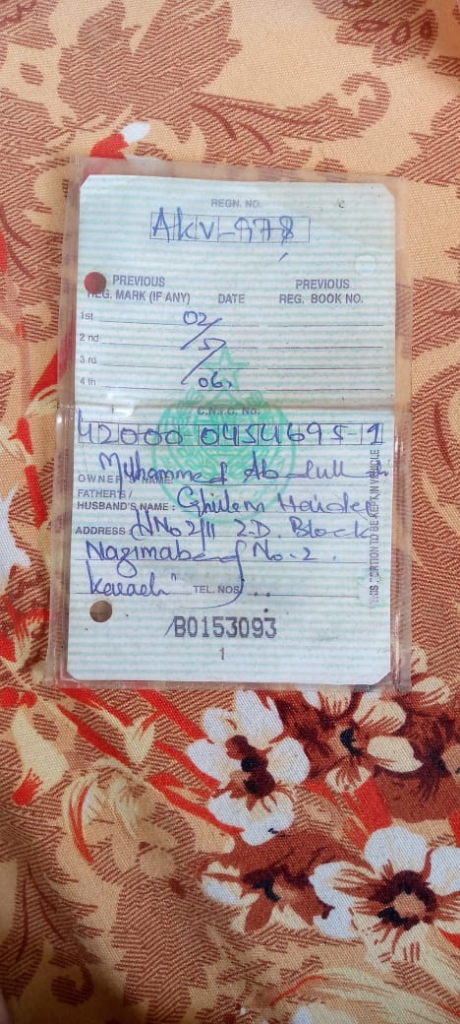 REGN. NO.
AKV-978
PREVIOUS PREVIOUS
REG. MARK (IF ANY) DATE REG. BOOK NO.
1st 02/
2nd 5/
3rd
4th 06.
C.N.I.C. No.
42000 0454695 1
OWNER'S NAME: Muhammad Abdullah
FATHER'S /
HUSBAND'S NAME : Ghulam Haider
ADDRESS HNo 2/11 2-D. Block
Nazimabad No. 2.
Karachi"
TEL. NOS.
B0153093
1
THIS PORTION TO BE KEPT IN VEHICLE